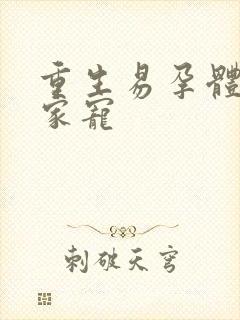 重生易孕體
家寵
刺破天穹